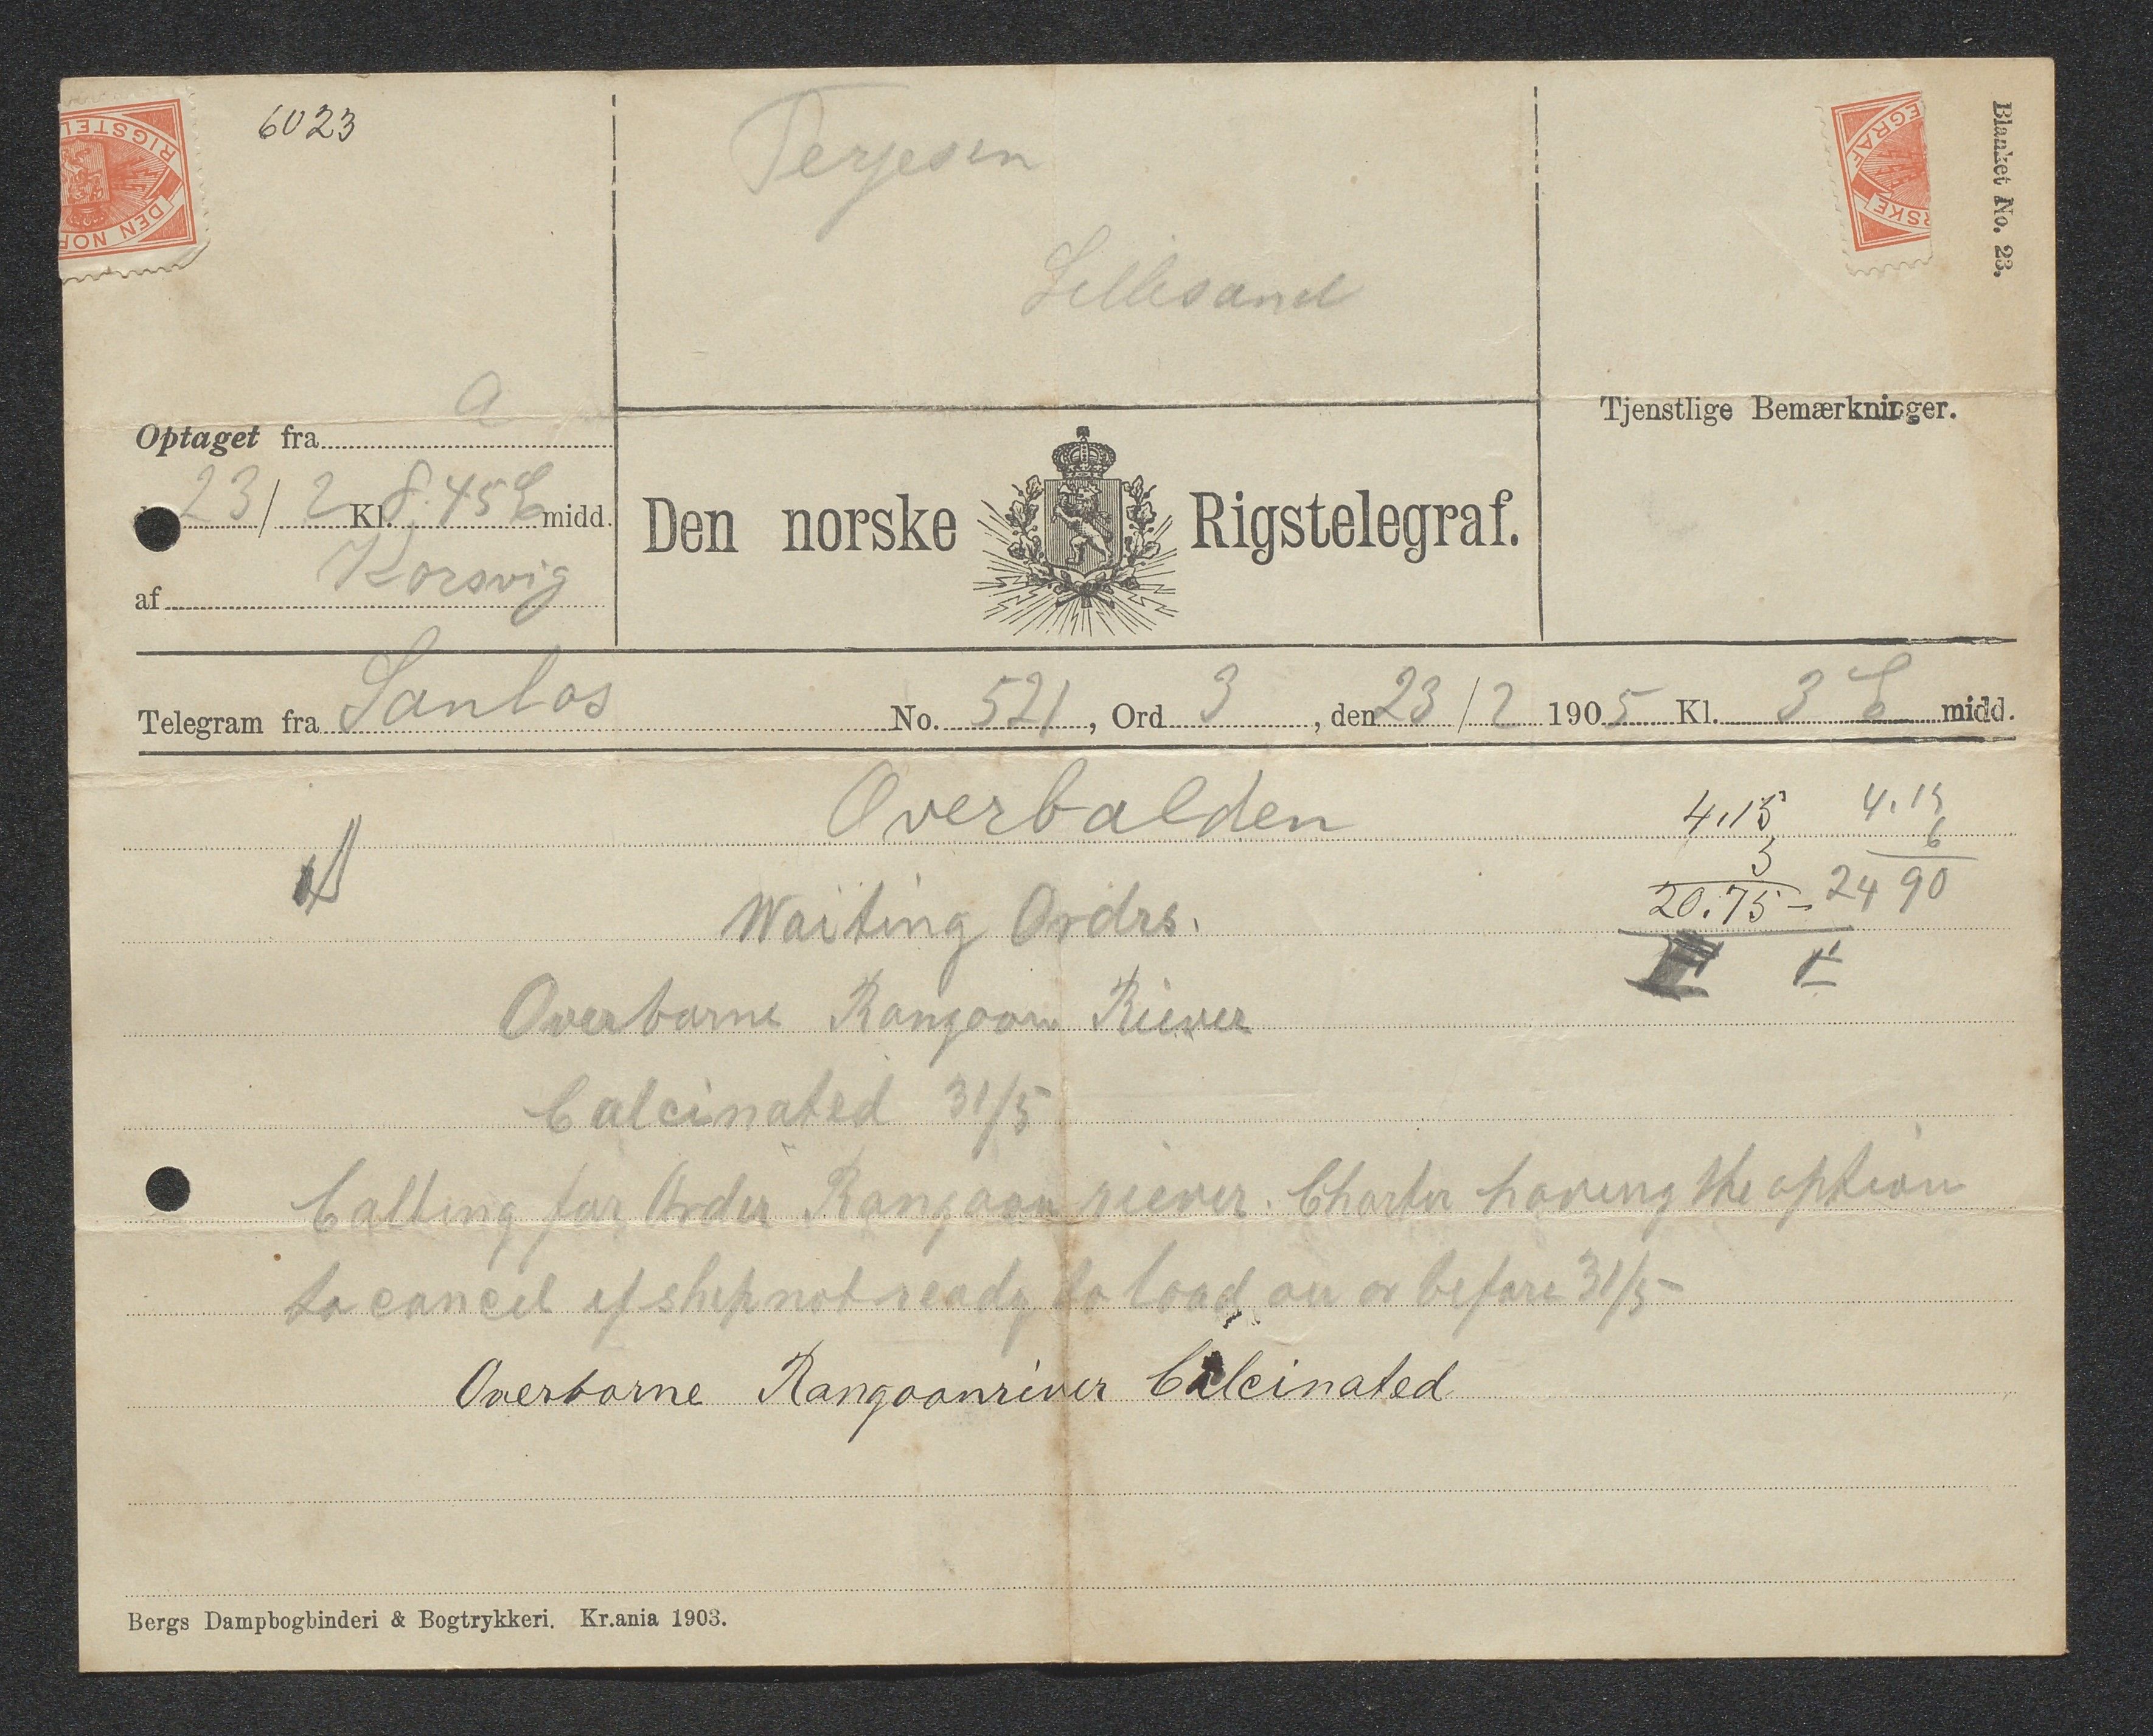 6023
RIGSTEL
DEN NOR
EGRAF
RSKE
Blanket No. 23.
Terjesen
Lillesand
Tjenstlige Bemærkninger.
Optaget fra a
23/2 Kl. 8.45 E midd.
af Korsvig
Den norske Rigstelegraf.
Telegram fra Santos No. 521, Ord 3, den 23/2 1905 Kl. 3 E midd.
Overbalden
4.15 4.15
5 6
20.75 - 24 90
Waiting Ordrs.
Overborne Rangoon Riever
Calcinated 31/5
Calling for Order Rangoon riever. Charter having the option
to cancel if ship not ready to load on or before 31/5
Overborne Rangoonriver Calcinated
Bergs Dampbogbinderi & Bogtrykkeri. Kr.ania 1903.